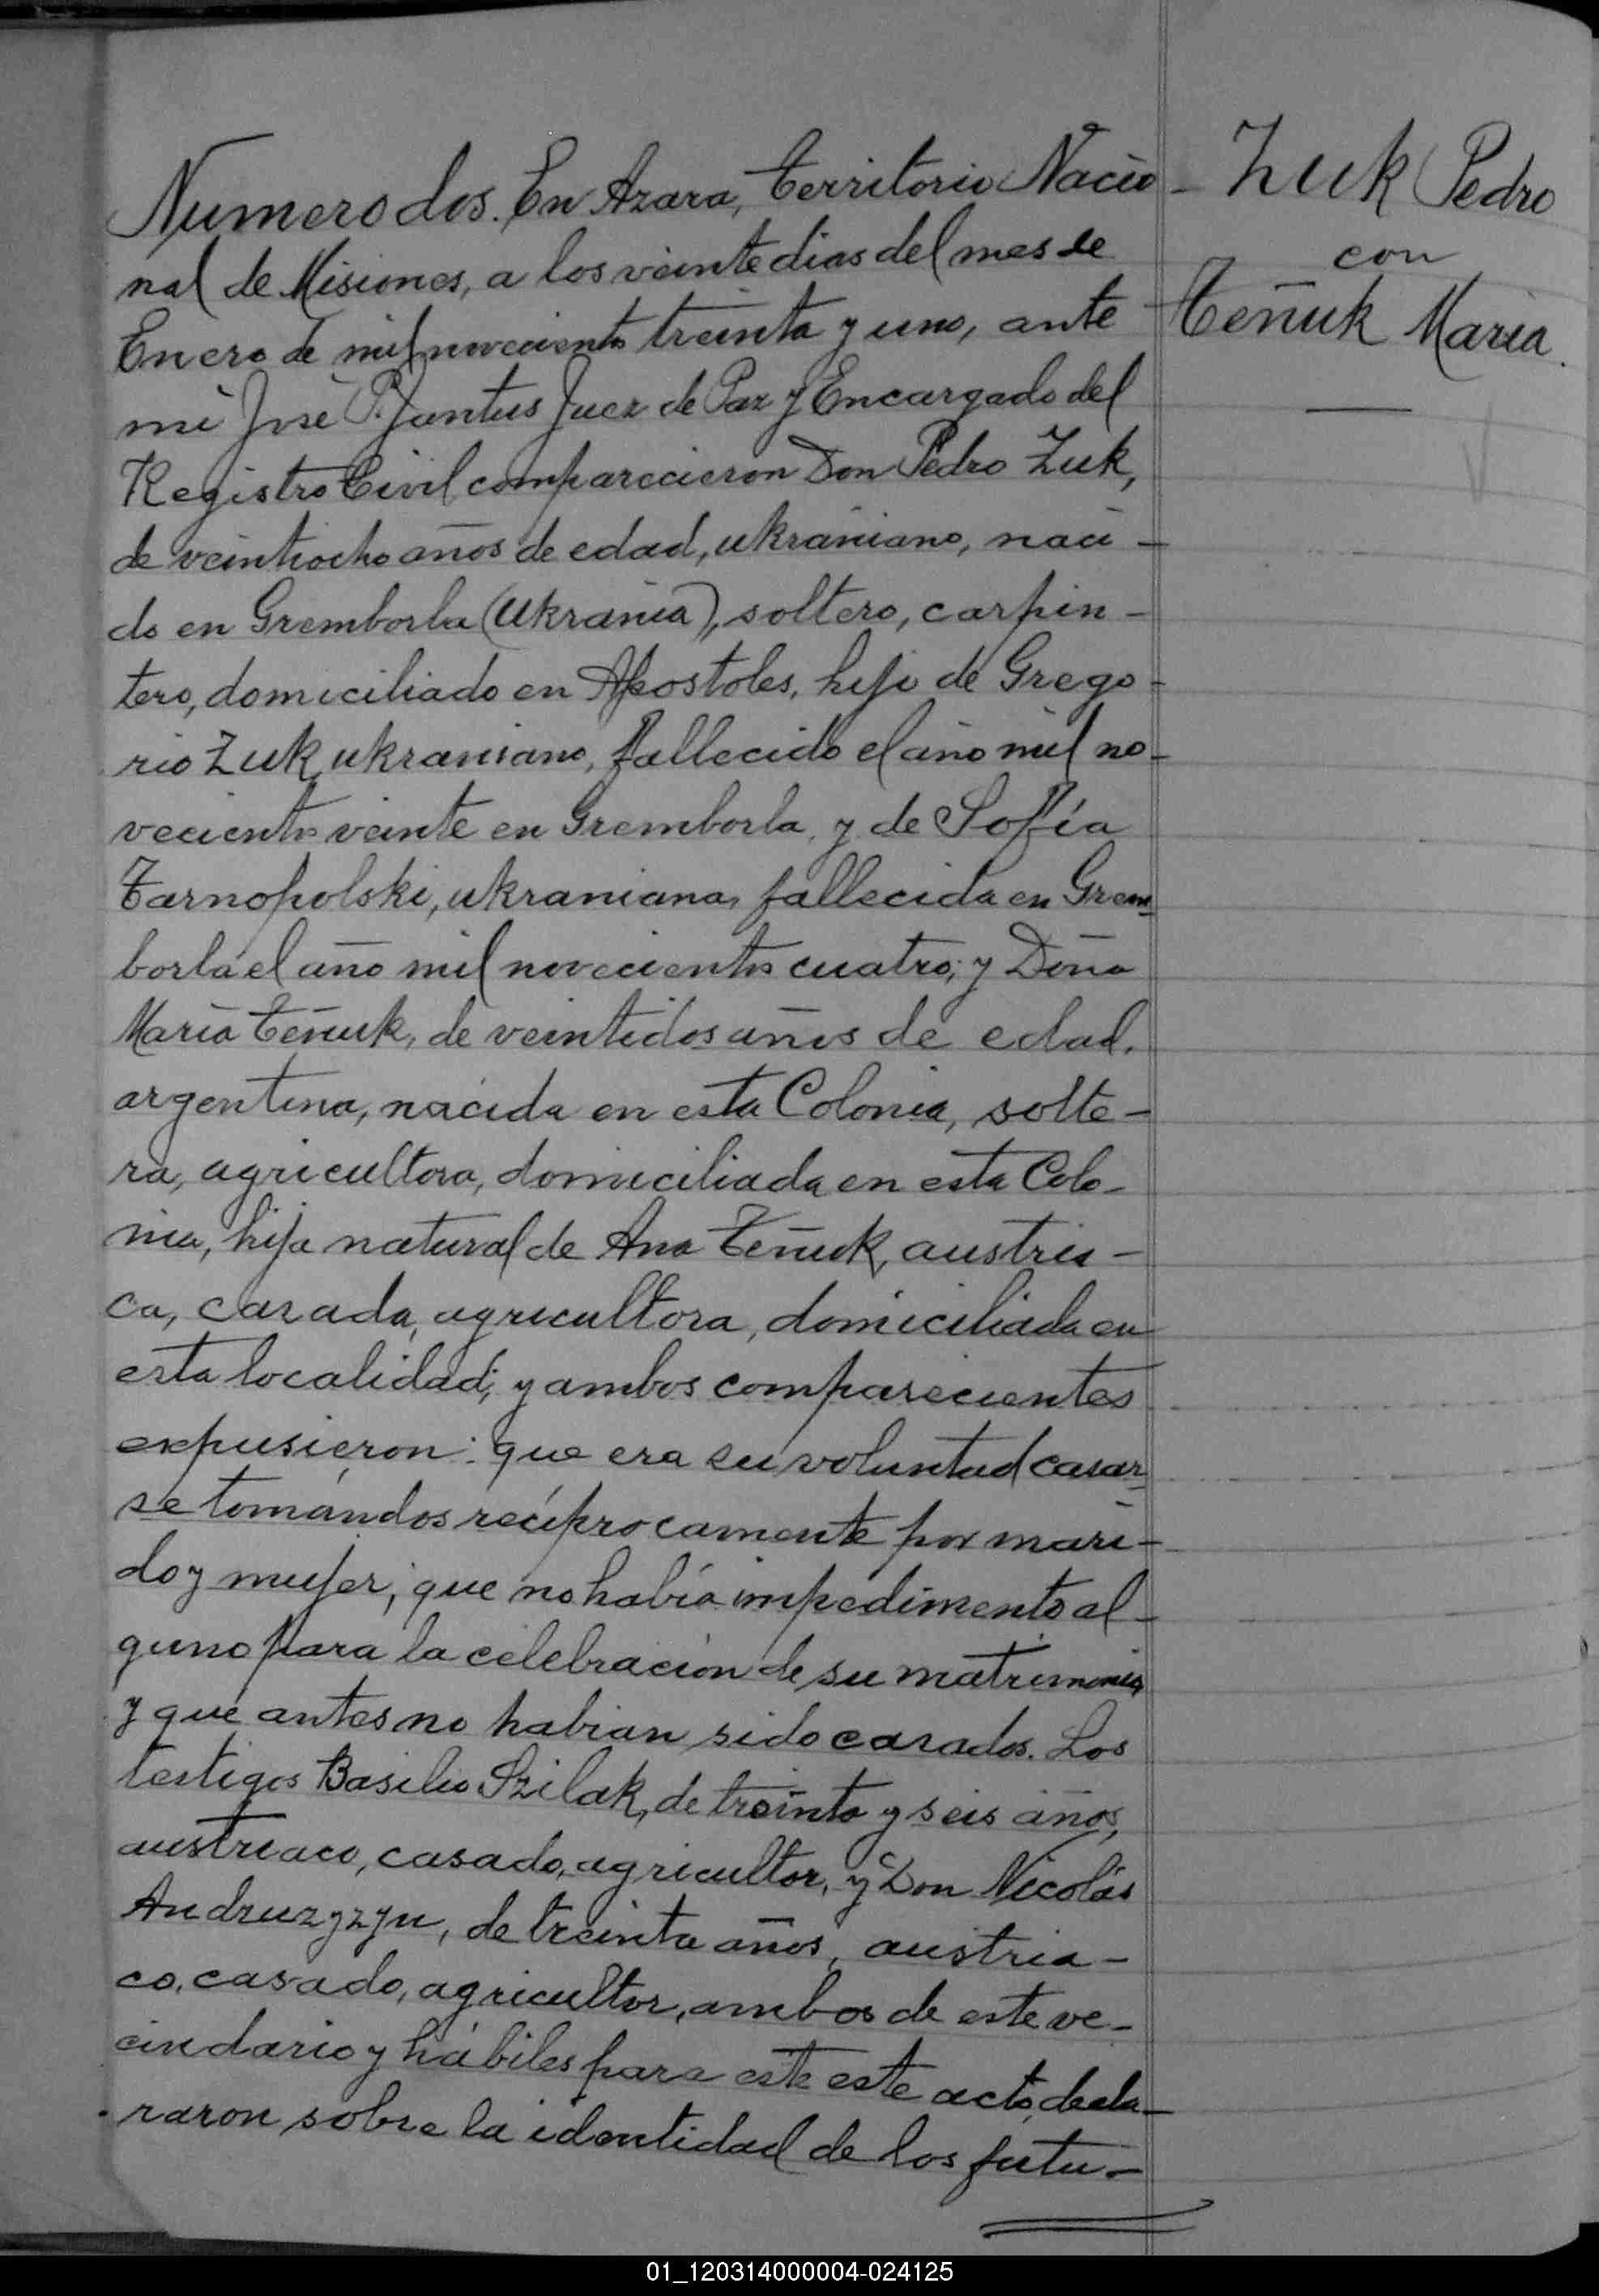 Zuk Pedro
con
Teñuk Maria.
Numero dos. En Azara, Territorio Nacio-
nal de Misiones, a los veinte dias del mes de
Enero de mil novecientos treinta y uno, ante
mi José P. Juntus Juez de Paz y Encargado del
Registro Civil, comparecieron Don Pedro Zuk,
de veintiocho años de edad, ukraniano, naci-
do en Gremborla (Ukrania), soltero, carpin-
tero, domiciliado en Apostoles, hijo de Grego-
rio Zuk, ukraniano, fallecido el año mil no-
vecientos veinte en Gremborla, y de Sofía
Tarnopolski, ukraniana, fallecida en Grem-
borla el año mil novecientos cuatro; y Doña
Maria Teñuk, de veintidos años de edad,
argentina, nacida en esta Colonia, solte-
ra, agricultora, domiciliada en esta Colo-
nia, hija natural de Ana Teñuk, austria-
ca, casada, agricultora, domiciliada en
esta localidad; y ambos comparecientes
expusieron: que era su voluntad casar-
se tomándos recíprocamente por mari-
do y mujer; que no había impedimento al-
guno para la celebración de su matrimonio
y que antes no habian sido casados. Los
testigos Basilio Szilak, de treinta y seis años,
austriaco, casado, agricultor, y Don Nicolás
Andruzyzyn, de treinta años, austria-
co, casado, agricultor, ambos de este ve-
cindario y hábiles para este este acto, decla-
raron sobre la identidad de los futu-
01_120314000004-024125